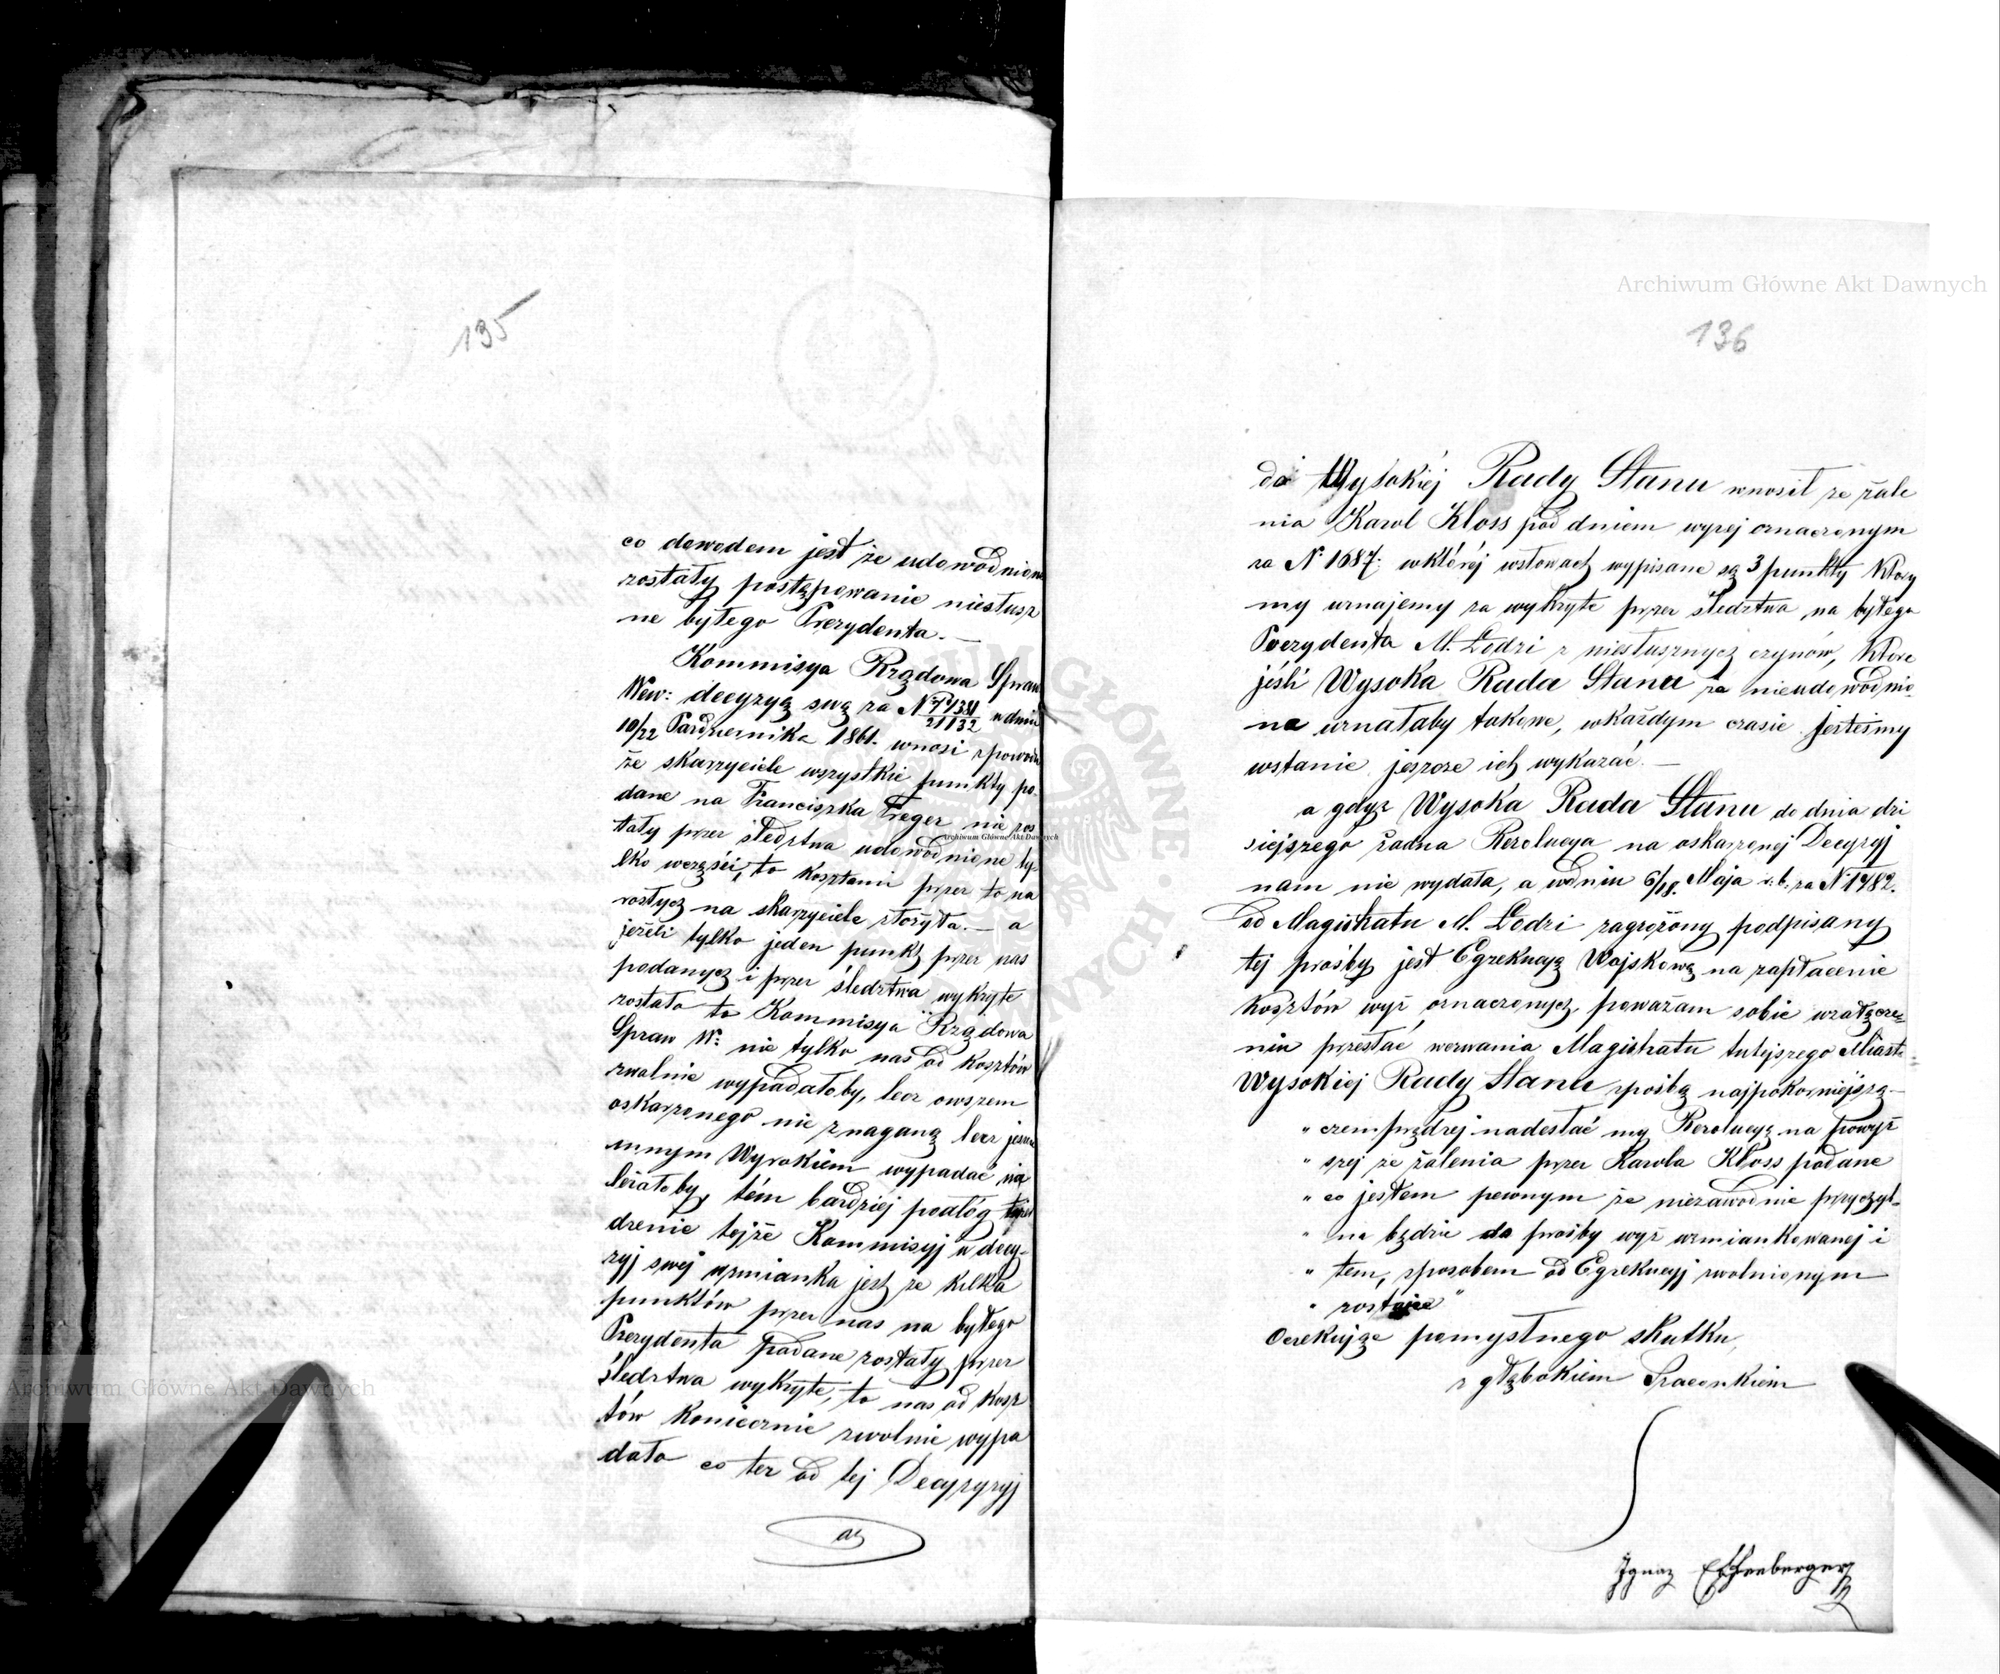 135
co dowodem jest że udowodnione
zostały postępowanie niesłusz
ne byłego Prezydenta. —
Kommisya Rządowa Spraw
Wew: decyzyą swą za N 
21132 w dniu
10/22 Pazdziernika 1861. wnosi z powodu
że skarzyciele wszystkie punkty po-
dane na Franciszka Treger nie zos
tały przez śledztwa udowodnione ty-
lko wczęści, to kosztami przez to na
rostycz na skarzyciele złożyła. — a
jeżeli tylko jeden punkt przez nas
podanycz i przez śledztwa wykryte
zostało to Kommisya Rządowa
Spraw W: nie tylko nas od kosztów
zwolnie wypadałoby, lecz owszem
oskarzonego nie znaganą lecz
innym Wyrokiem wypadać na
leżałoby, tém bardziej podłóg
drenie tejże Kommisyj w decy-
zyj swej wzmianka jest że kilka
punktów przez nas na byłego
Prezydenta podane zostały przez
śledztwa wykryte, to nas od kosz
tów koniecznie zwolnie wypa
dało co tez od tej Decyzyzyj
Archiwum Główne Akt Dawnych
136
do Wysokiéj Rady Stanu wnosił ze żale
nia Karol Kloss pod dniem wyzej oznaczonym
za N 1687: w któréj wstowach wypisane są 3 punkty Który
my uznajemy za wykryte przez śledztwa na byłego
Prezydenta M. Łodzi z niesłusznycz czynów, Które
jéśli Wysoka Rada Stanu za nieudowodnio-
ne uznałaby takowe, wkażdym czasie jestesmy
wstanie jeszcze ich wykazać. —
a gdyz Wysoka Rada Stanu do dnia dzi
siejszego żadna Rezolucya na oskarzonej Decyzyj
nam nie wydała, a wdniu 6/18. Maja r. b. za N 1482.
od Magistratu M. Łodzi zagrożony podpisany
tej prośby jest Egzekucyą Wojskową na zapłacenie
Kosztów wyż oznaczonycz, poważam sobie wzałącze-
niu przesłać wezwania Magistratu tutejszego Miasta
Wysokiej Rady Stanu zprośbą najpokorniejszą. —
„ czemprzdzej nadesłać my Rezolucyą na powyż
„ szej ze żalenia przez Karola Kloss podane
„ co jestem pewnym że niezawodnie przyczyl-
„ na będzie do prośby wyż wzmiankowanej i
„ tem, sposobem od Egzekucyj zwolnionym
„ zostaje “
Oczekując pomyslnego skutku,
z głębokiem Szacunkiem
Ignaz Effenberger
Archiwum Główne Akt Dawnych
Archiwum Główne Akt Dawnych